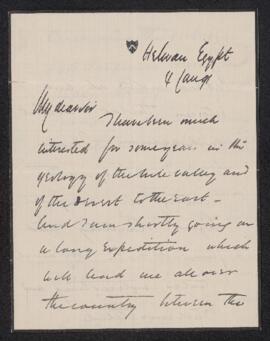 Helwan Egypt
My dear Sir
I have been much
interested for some years in the
geology of the Nile valley and
of the desert to the East -
and I am shortly going on
a long expedition which
will lead me all over
the country between the